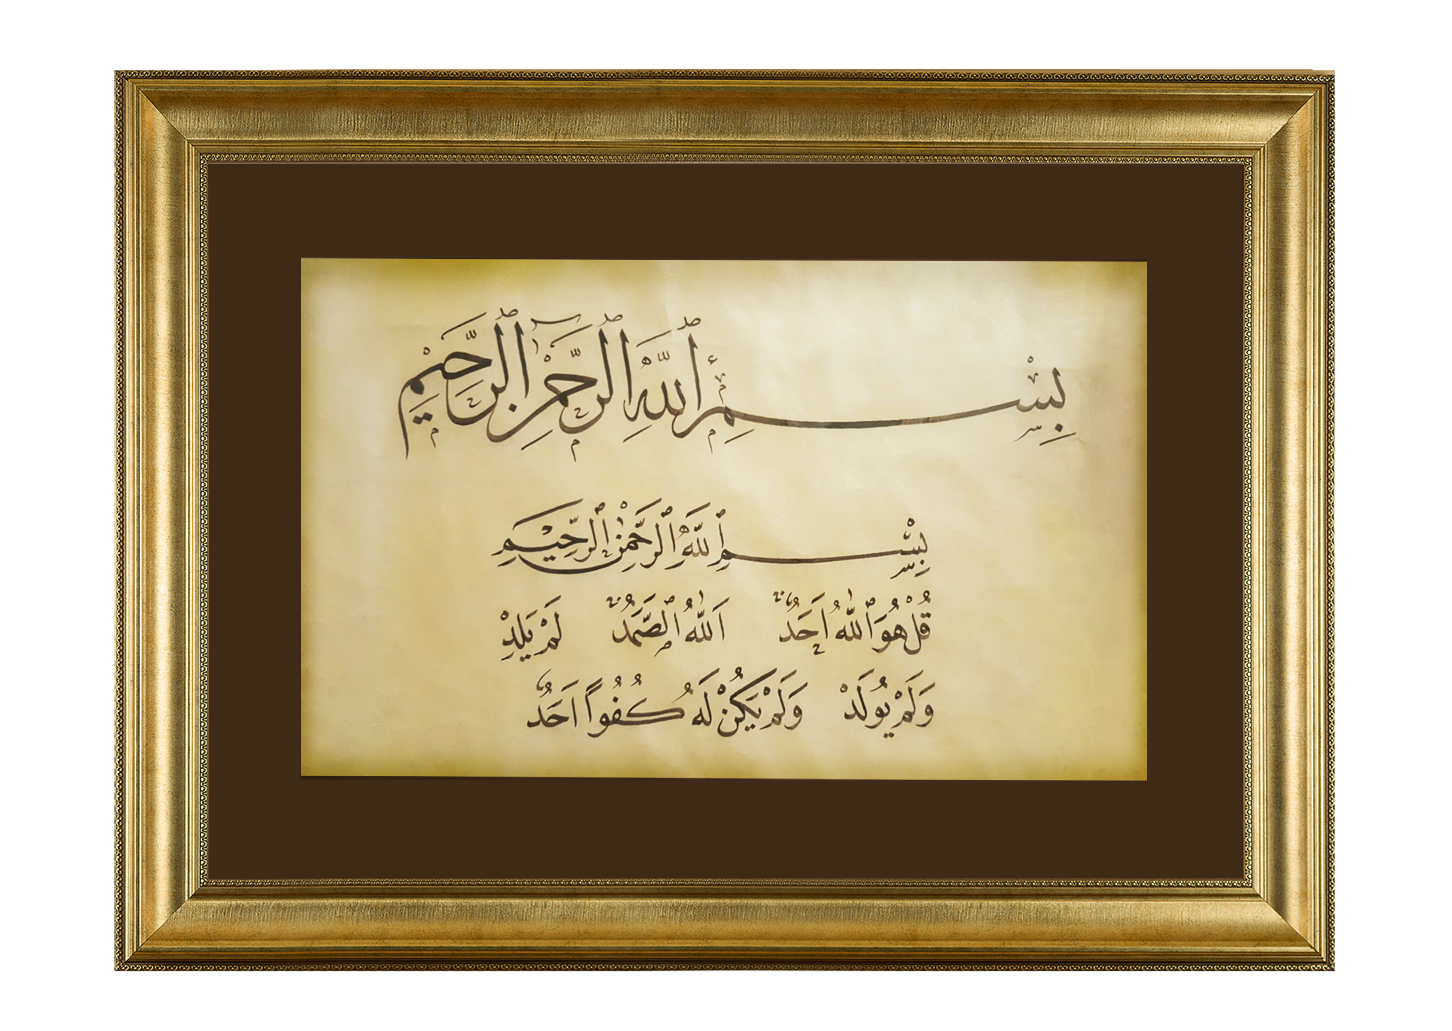 بِسْمِ ٱللَّهِ ٱلرَّحْمَنِ ٱلرَّحِيمِ
بِسْمِ ٱللَّهِ ٱلرَّحْمٰنِ ٱلرَّحِيْمِ
قُلْ هُوَ ٱللّٰهُ أَحَدٌ اَللّٰهُ ٱلصَّمَدُ لَمْ يَلِدْ
وَلَمْ يُولَدْ وَلَمْ يَكُنْ لَهُ كُفُواً اَحَدٌ